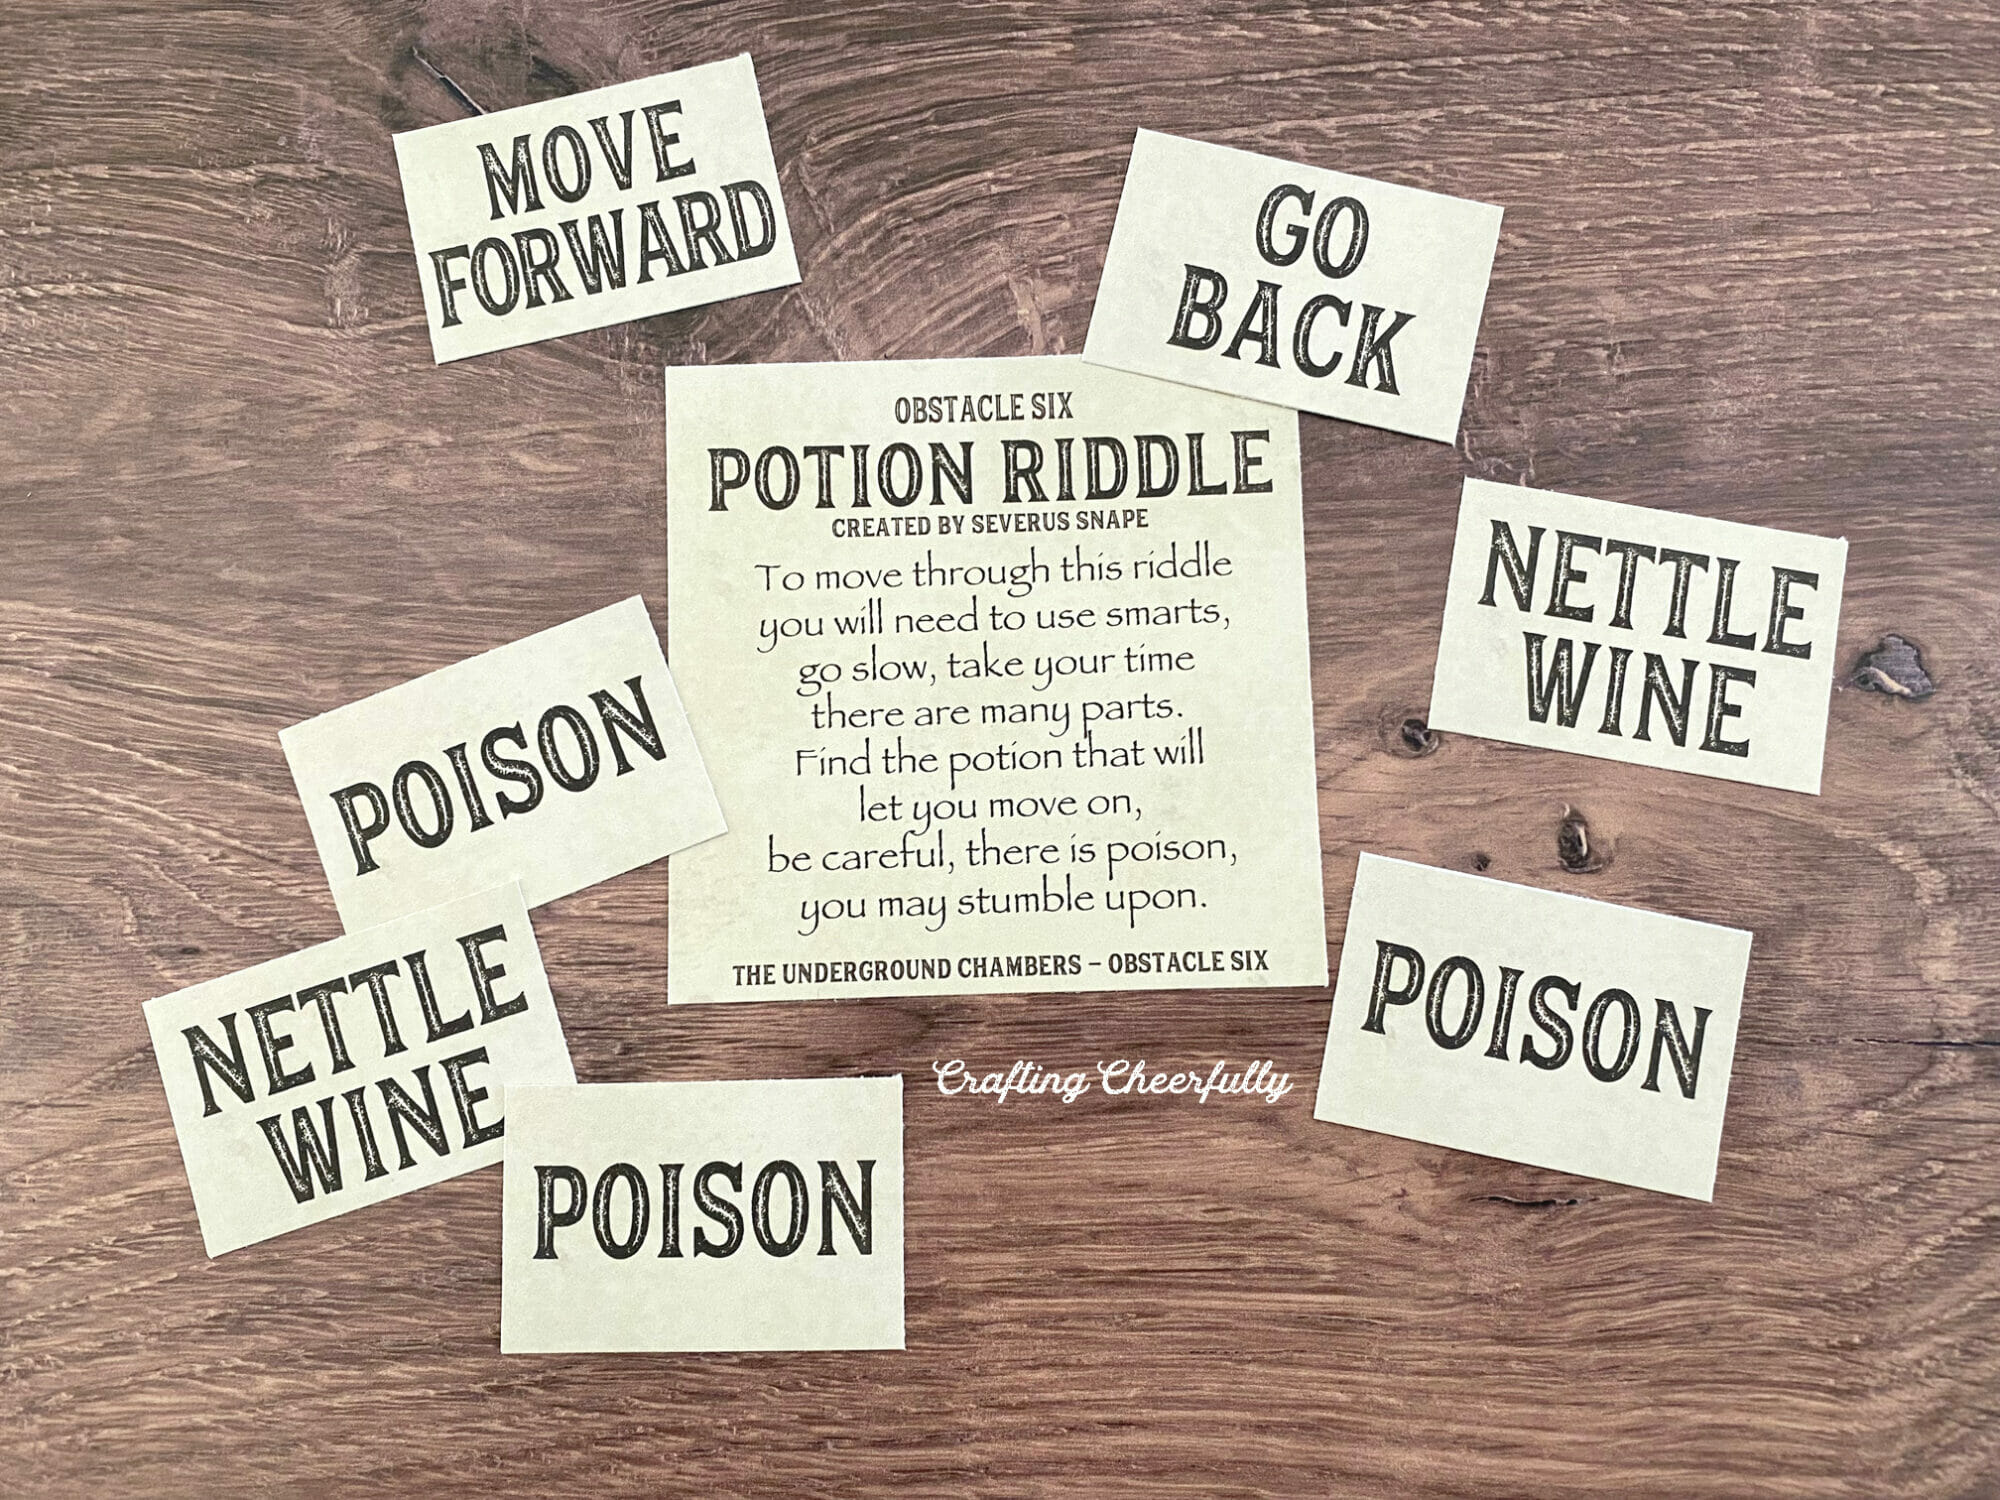 MOVE
FORWARD
GO
BACK
OBSTACLE SIX
POTION RIDDLE
CREATED BY SEVERUS SNAPE
To move through this riddle
you will need to use smarts,
go slow, take your time
there are many parts.
Find the potion that will
let you move on,
be careful, there is poison,
you may stumble upon.
THE UNDERGROUND CHAMBERS – OBSTACLE SIX
NETTLE
WINE
POISON
NETTLE
WINE
POISON
POISON
Crafting Cheerfully